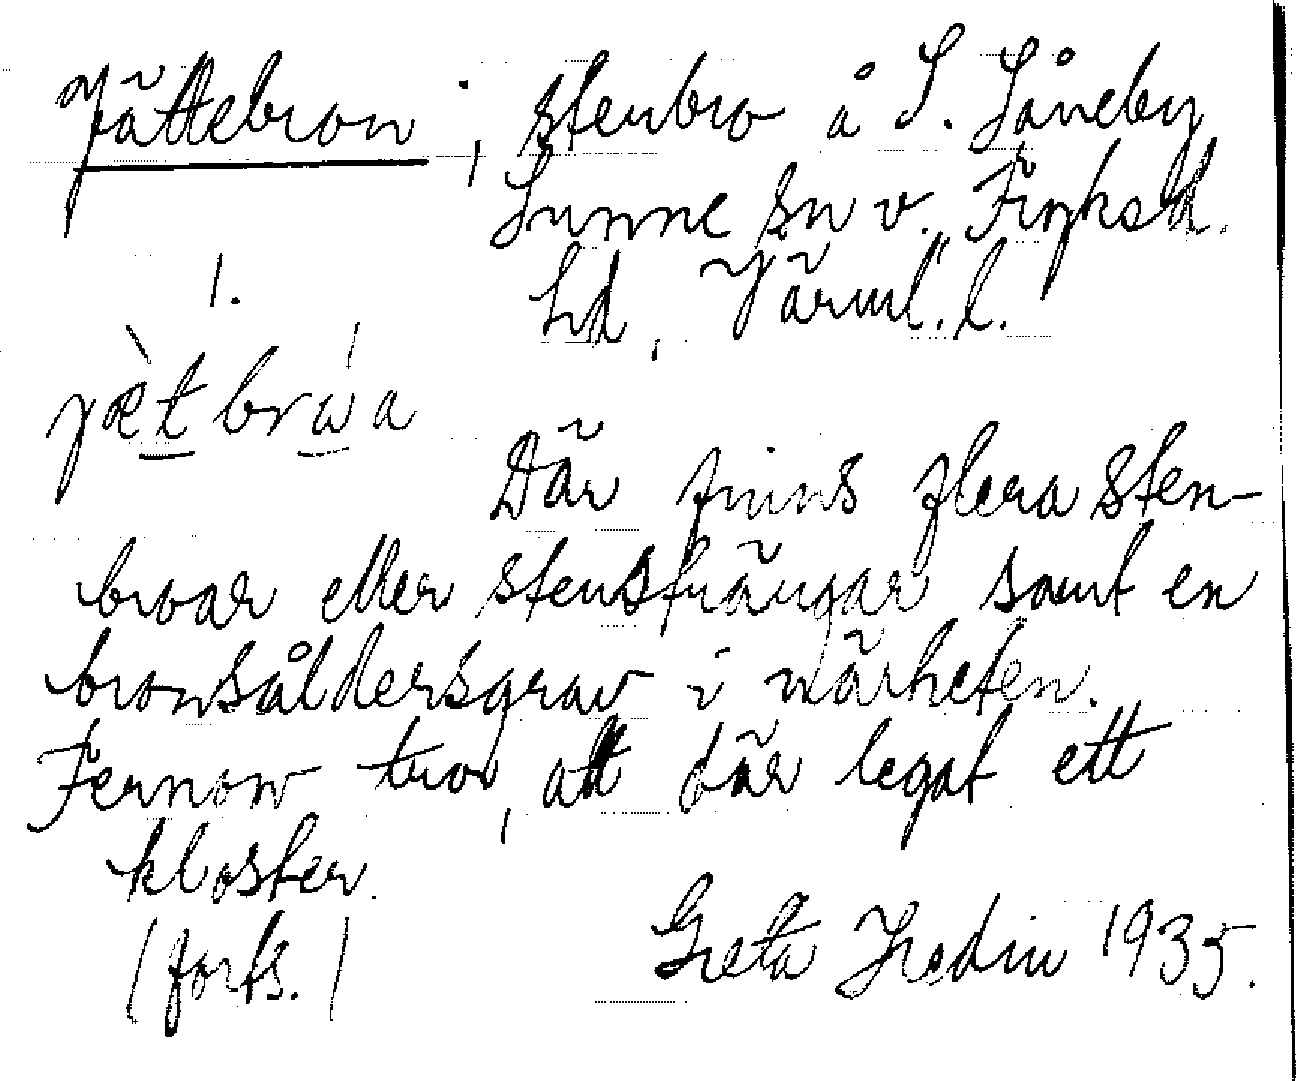 Jättebron, stenbro å S. Såneby
Sunne sn v. Fryksd.
hd, Värml. l.
1.
jætbrωa
Där finns flera sten-
broar eller stensträngar samt en
bronsåldersgrav i närheten.
Fernow tror, att där legat ett
kloster.
(forts.)
Greta Hedin 1935.